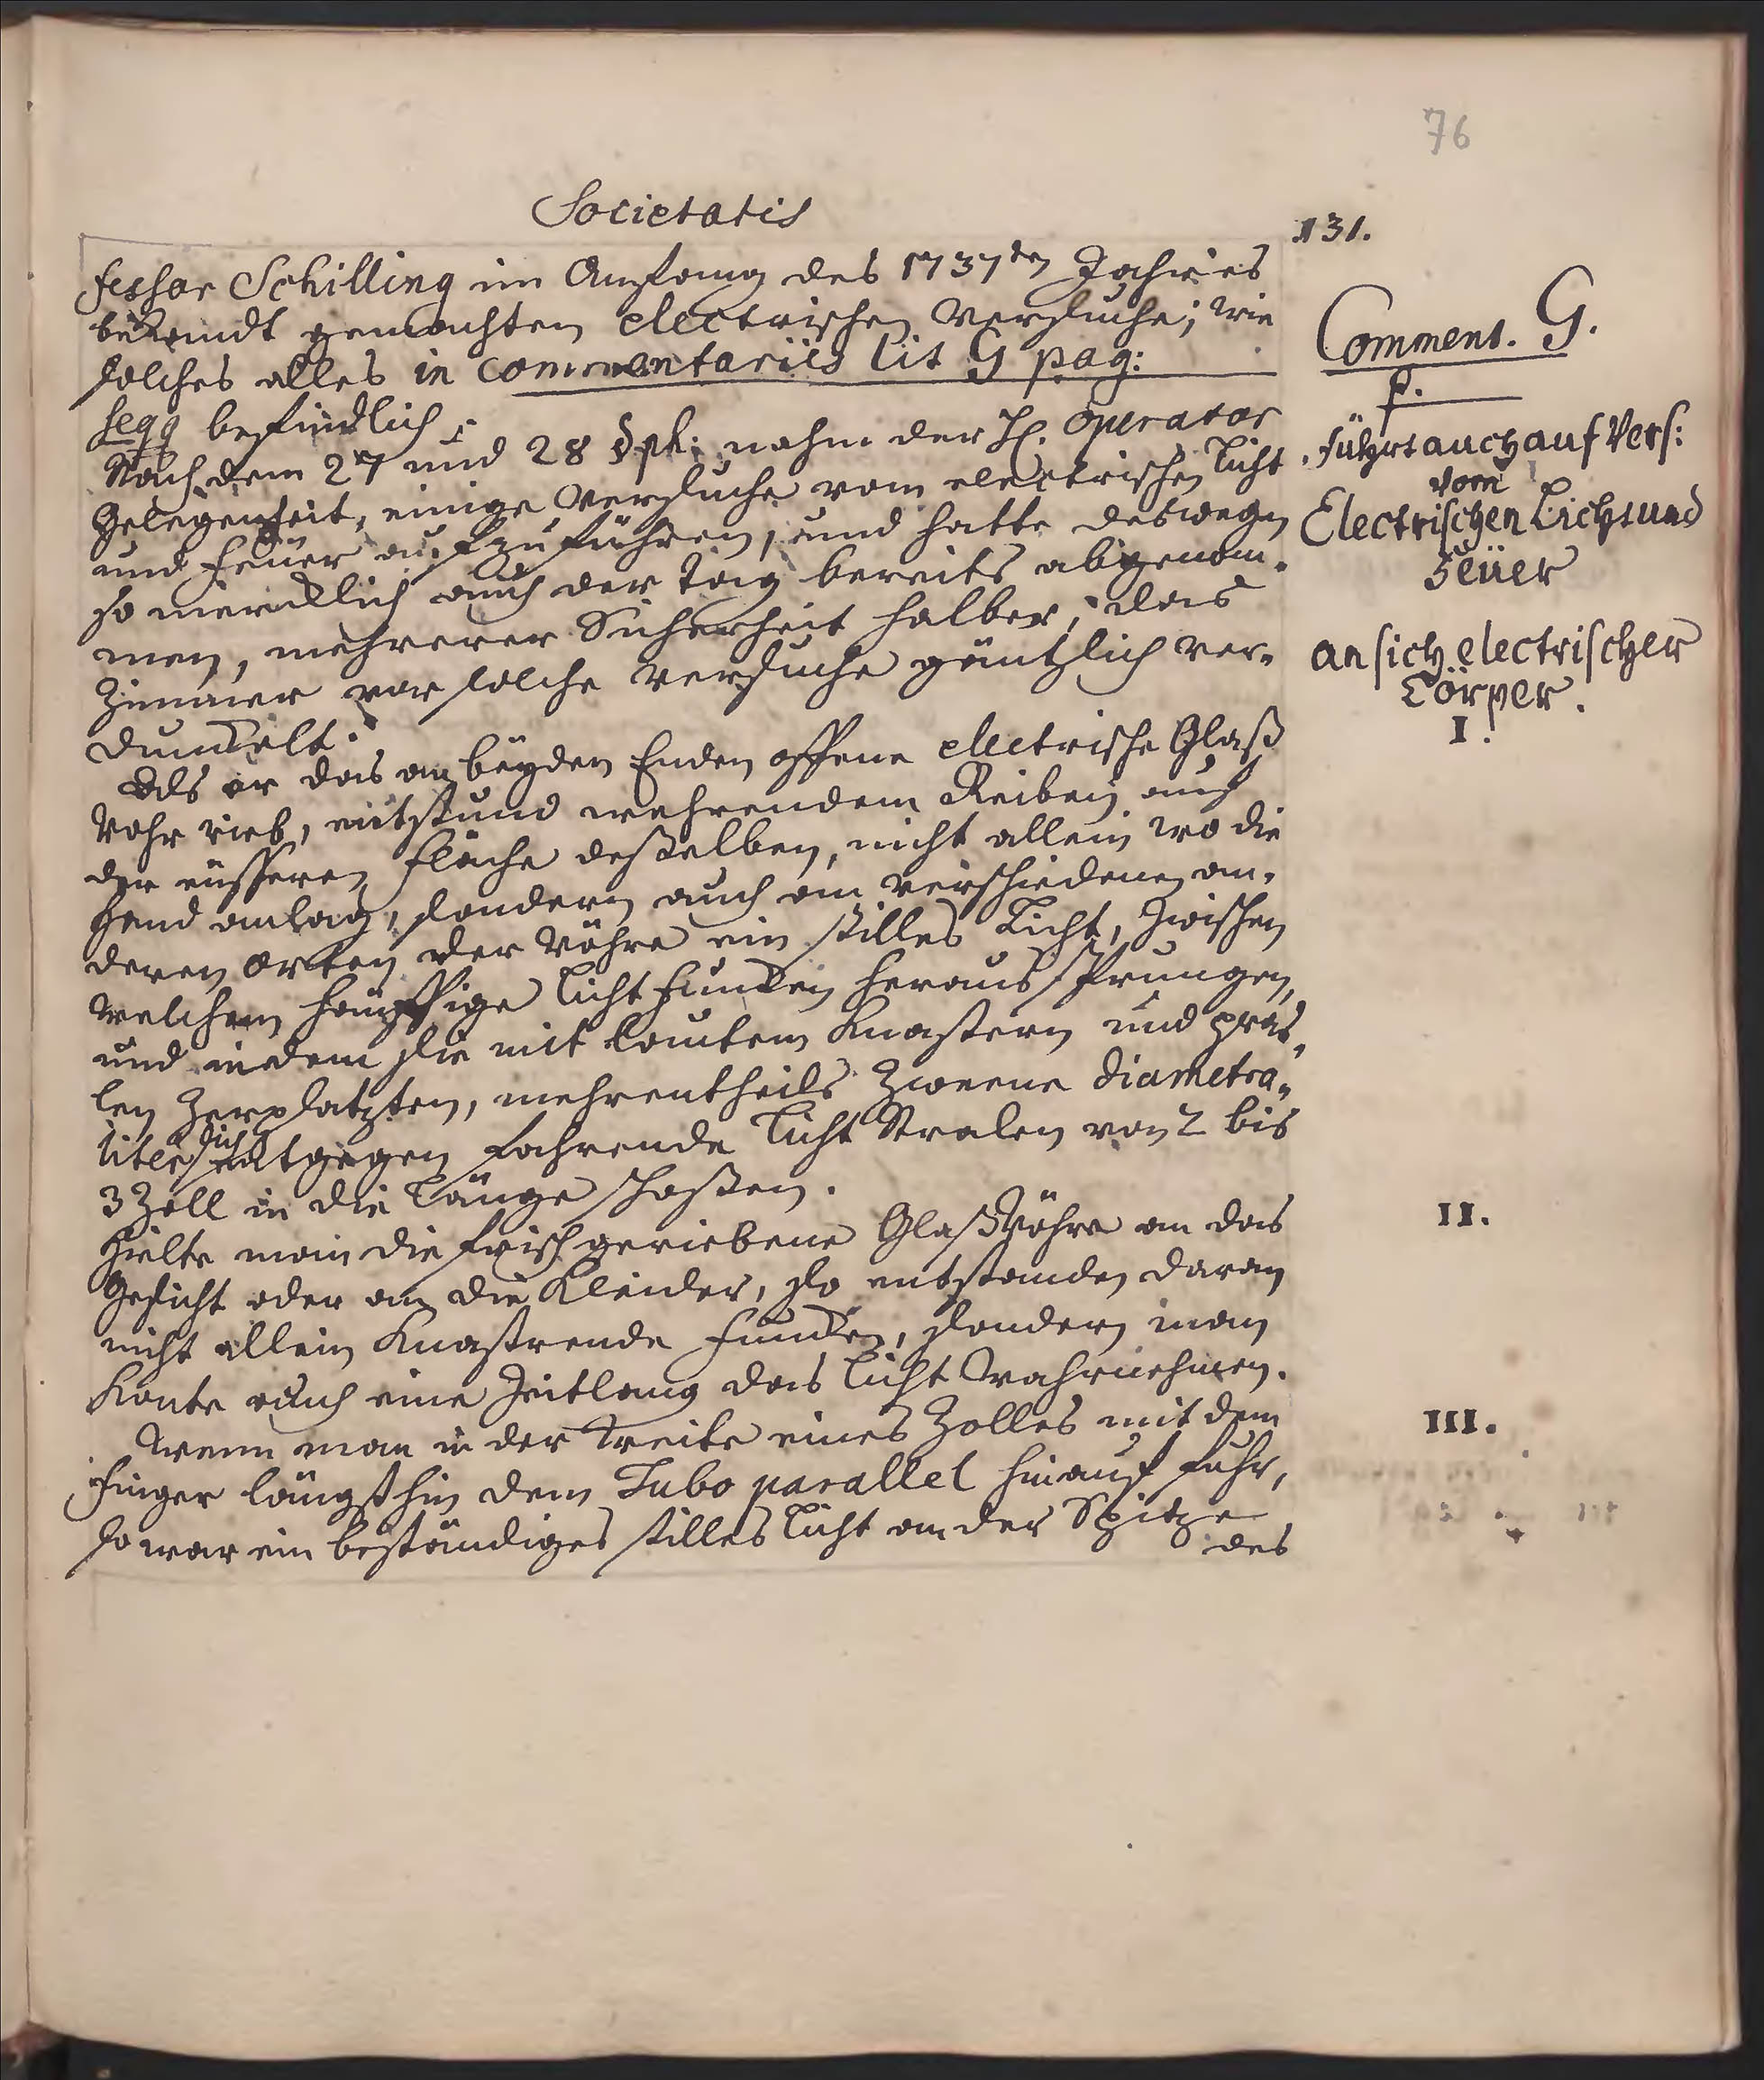 76
Societatis
131.
fessor Schilling im Anfang des 1737ten Jahres
bekandt gemachten electrischen Versuche; wie
solches alles in Commentariis lit G pag:
seqq befindlich.
Comment. G.
p.
Nach dem 27 und 28 Sph: nahm der H. Operator
Gelegenheit, einige Versuche vom electrischen Licht
und Feuer aufzuführen, und hatte deswegen
so mercklich auch der Tag bereits abgenom-
men, mehrerer Sicherheit halber, das
Zimmer vor solche Versuche gäntzlich ver-
dunckelt.
führt auch auf Vers:
vom
Electrischen Licht und
Feüer
an sich electrischer
Cörper.
I.
Als er das an beyden Enden offene electrische Glaß
Rohr rieb, entstund wehrendem Reiben auf
der eüsseren Fläche deßelben, nicht allein wo die
Hand anlag, sondern auch an verschiedenen an-
deren Orten der Röhre ein stilles Licht, zwischen
welchem häuffige Licht Funcken heraus sprungen,
und indem sie mit lautem Knastern und pras-
len zerplatzten, mehrentheils zweene diametra-
liter sich entgegen fahrende Licht Stralen von 2 bis
3 Zoll in die Länge schoßen.
II.
Hielte man die frisch geriebene Glaß Röhre an das
Gesicht oder an die Kleider, so entstanden daran
nicht allein Knastrende Funcken, sondern man
Konte auch eine Zeitlang das Licht Wahrnehmen.
III.
Wenn man in der Weite eines Zolles mit dem
Finger längst hin dem Tubo parallel hinauf fuhr,
so war ein beständiges stilles Licht an der Spitze
des